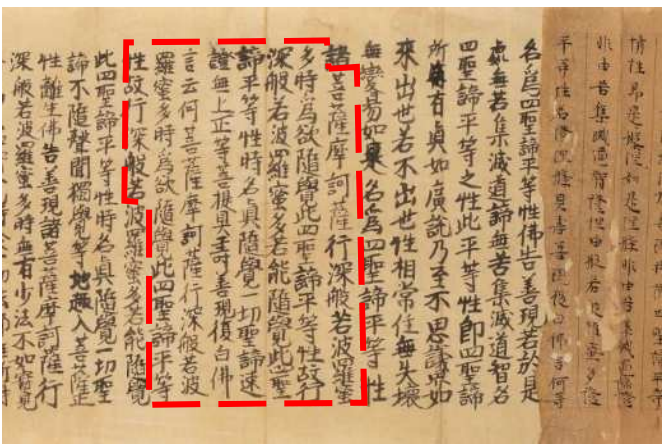 非由苦集滅道智得但由般若波羅蜜多證
平等性名
名爲四聖諦平等性佛告善現若於是
處無苦集滅道諦無苦集滅道智名
四聖諦平等之性此平等性即四聖諦
所有真如廣說乃至不思議界如
來出世若不出世性相常住無失壞
無變易如是名爲四聖諦平等性
諸菩薩摩訶薩行深般若波羅蜜
多時爲欲隨覺此四聖諦平等性故行
深般若波羅蜜多若能隨覺此四聖
諦平等性時名真隨覺一切聖諦速
證無上正等菩提具壽善現復白佛
言云何菩薩摩訶薩行深般若波
羅蜜多時爲欲隨覺此四聖諦平等
性故行深般若波羅蜜多若能隨覺
此四聖諦平等性時名真隨覺一切聖
諦不隨聲聞獨覺等地趣入菩薩正
性離生佛告善現諸菩薩摩訶薩行
深般若波羅蜜多時無有少法不如實見